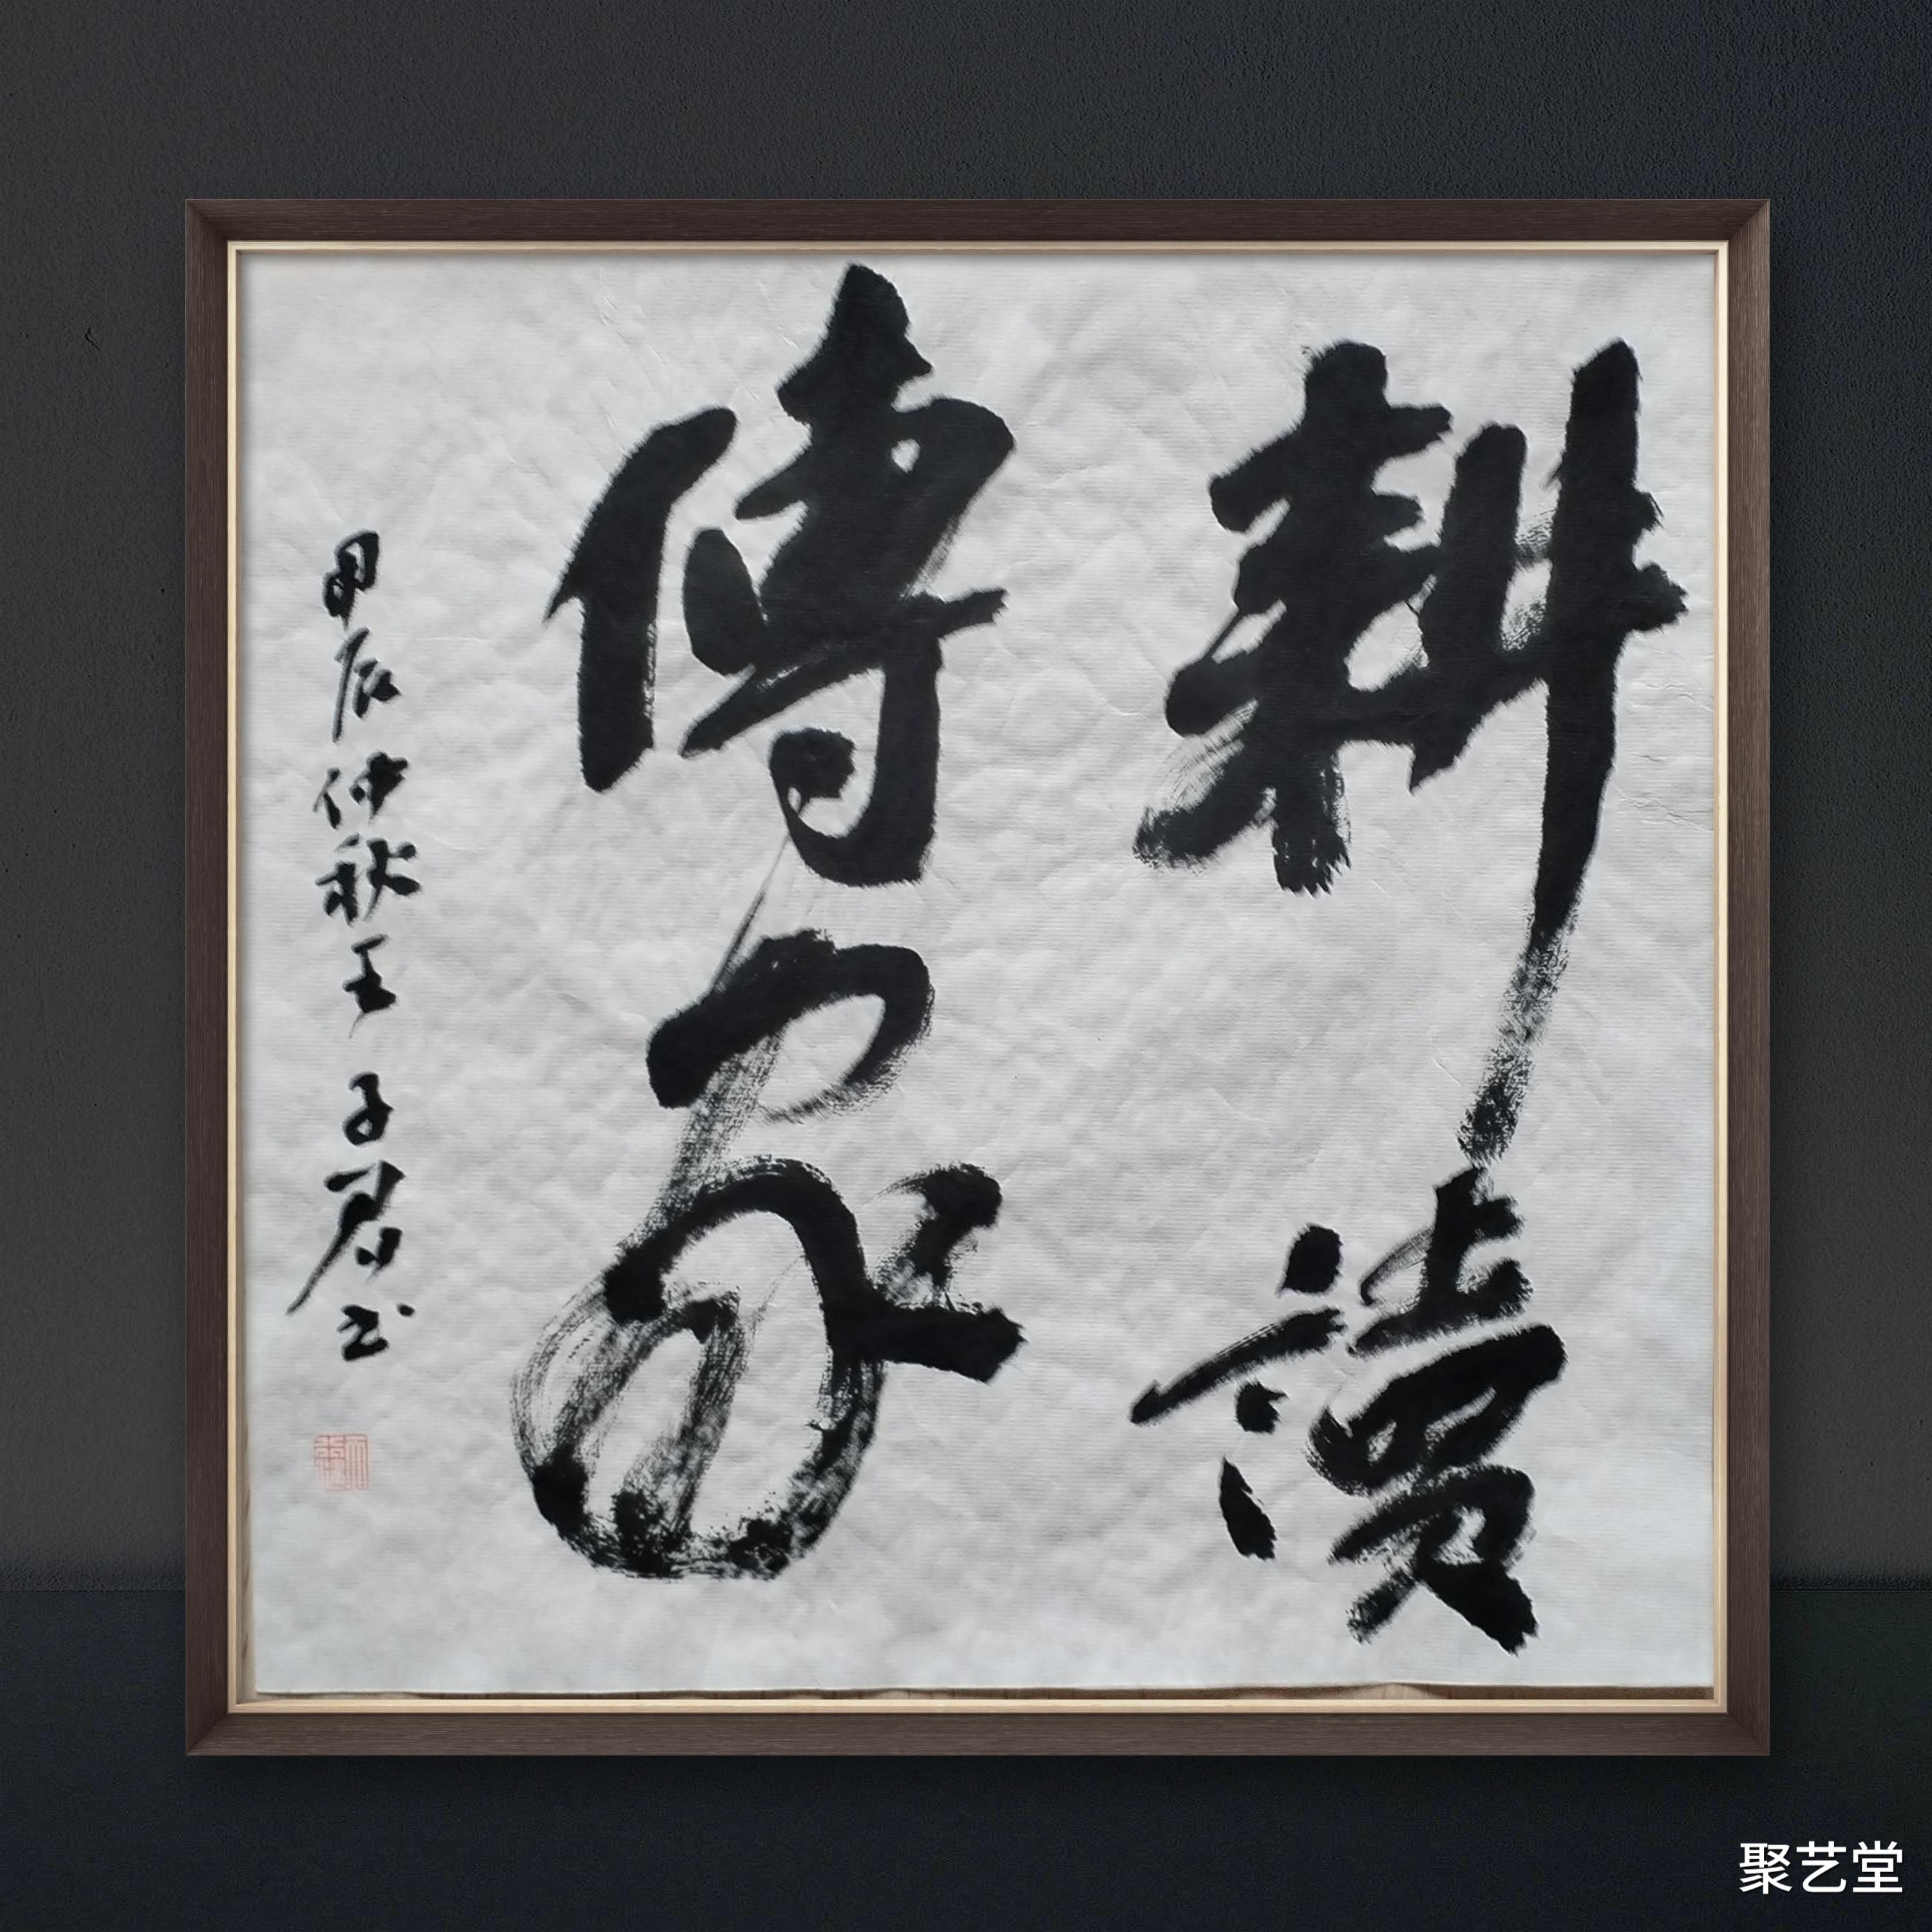 耕讀
傳家
甲辰仲秋王子君书
聚艺堂